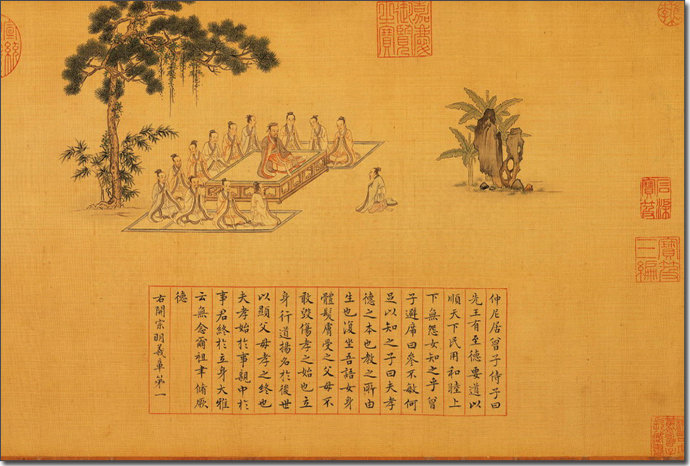 嘉慶
御覽
之寶
石渠
寶笈
寶笈
三編
仲尼居曾子侍子曰
先王有至德要道以
順天下民用和睦上
下無怨女知之乎曾
子避席曰參不敏何
足以知之子曰夫孝
德之本也教之所由
生也復坐吾語女身
體髮膚受之父母不
敢毀傷孝之始也立
身行道揚名於後世
以顯父母孝之終也
夫孝始於事親中於
事君終於立身大雅
云無念爾祖聿脩厥
德
右開宗明義章第一